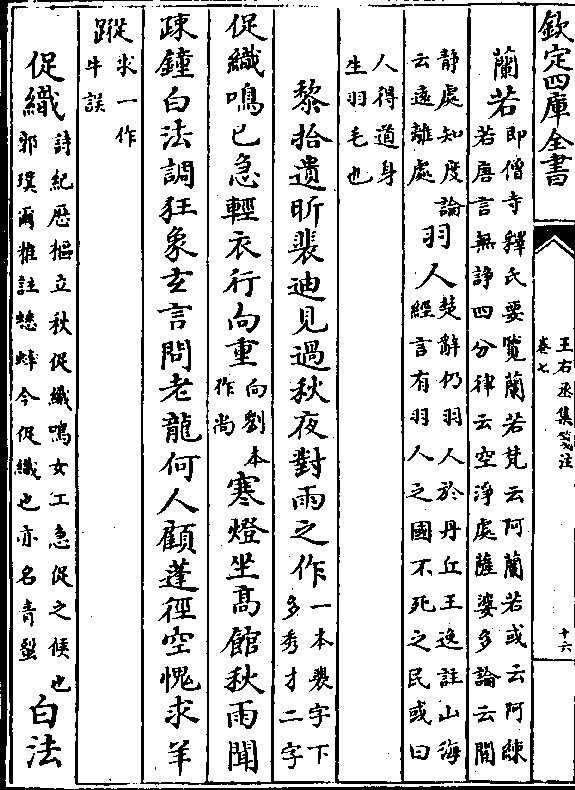 欽定四庫全書
王右丞集箋注
卷七
十六
蘭若
即僧寺釋氏要覽蘭若梵云阿蘭若或云阿練
若唐言無諍四分律云空淨處薩婆多論云閒
静處知度論
云逺離處
羽人
楚辭仍羽人於丹丘王逸註山海
經言有羽人之國不死之民或曰
人得道身
生羽毛也
黎拾遺昕裴迪見過秋夜對雨之作
一本裴字下
多秀才二字
促織鳴已急輕衣行向重
向劉本
作尚
寒燈坐髙館秋雨聞
疎鐘白法調狂象玄言問老龍何人顧蓬徑空愧求羊
蹤
求一作
牛誤
促織
詩紀歴樞立秋促織鳴女工急促之候也
郭璞爾雅註蟋蟀今促織也亦名青
白法